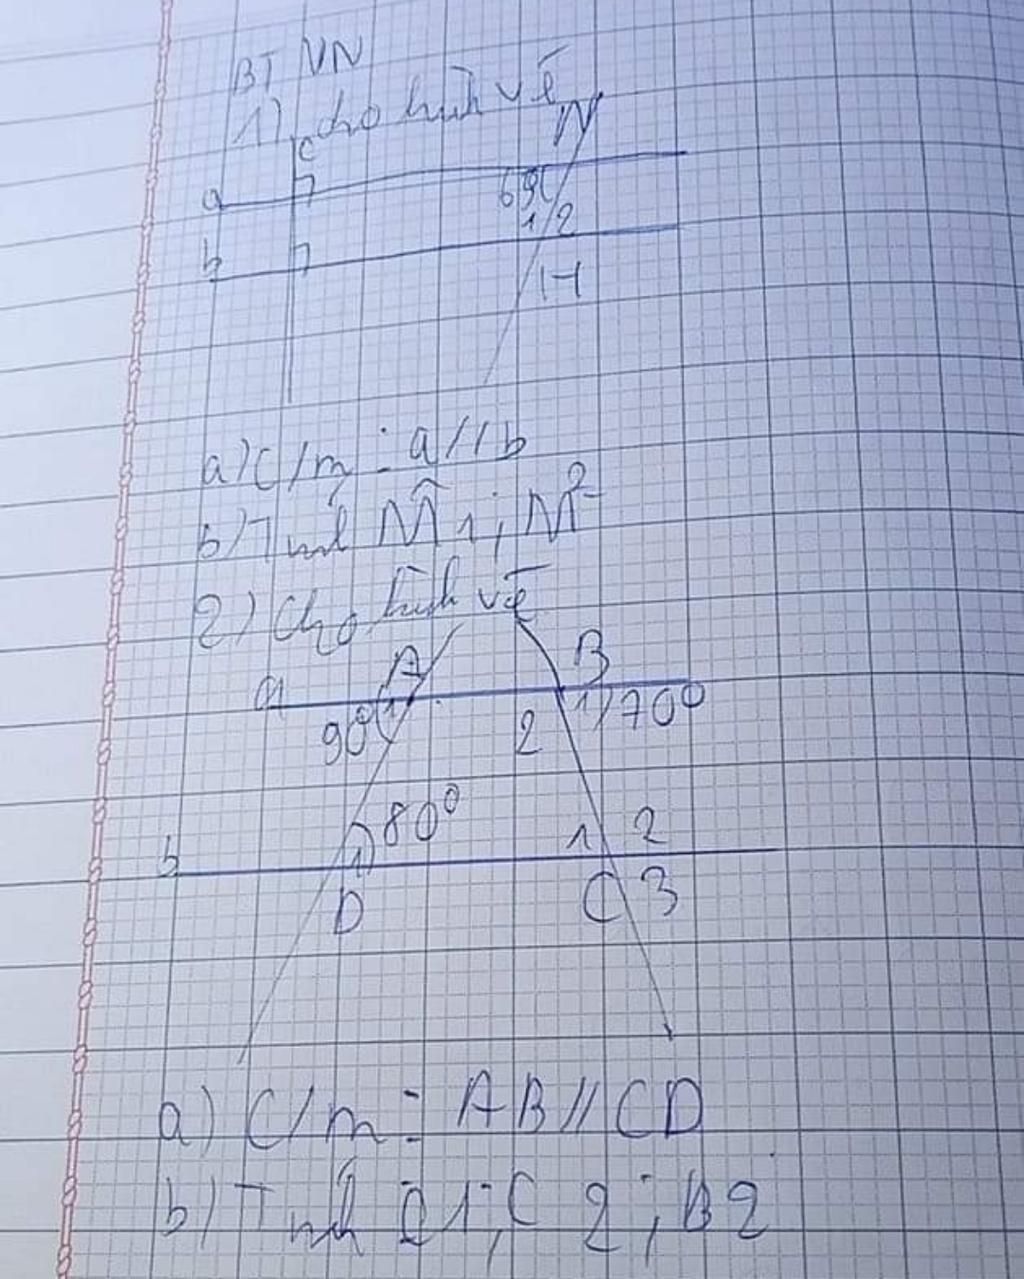 BT VN
1) cho hình vẽ
c N
a 69
1 2
b
H
a) C/m : a // b
b) Tính M̂ 1 ; M 2
2) Cho hình vẽ
A B
a 1 1 70⁰
90 2
80⁰
1 2
b 1
D C 3
a) C/m : AB // CD
b) Tính 1 ; C 2 ; B2